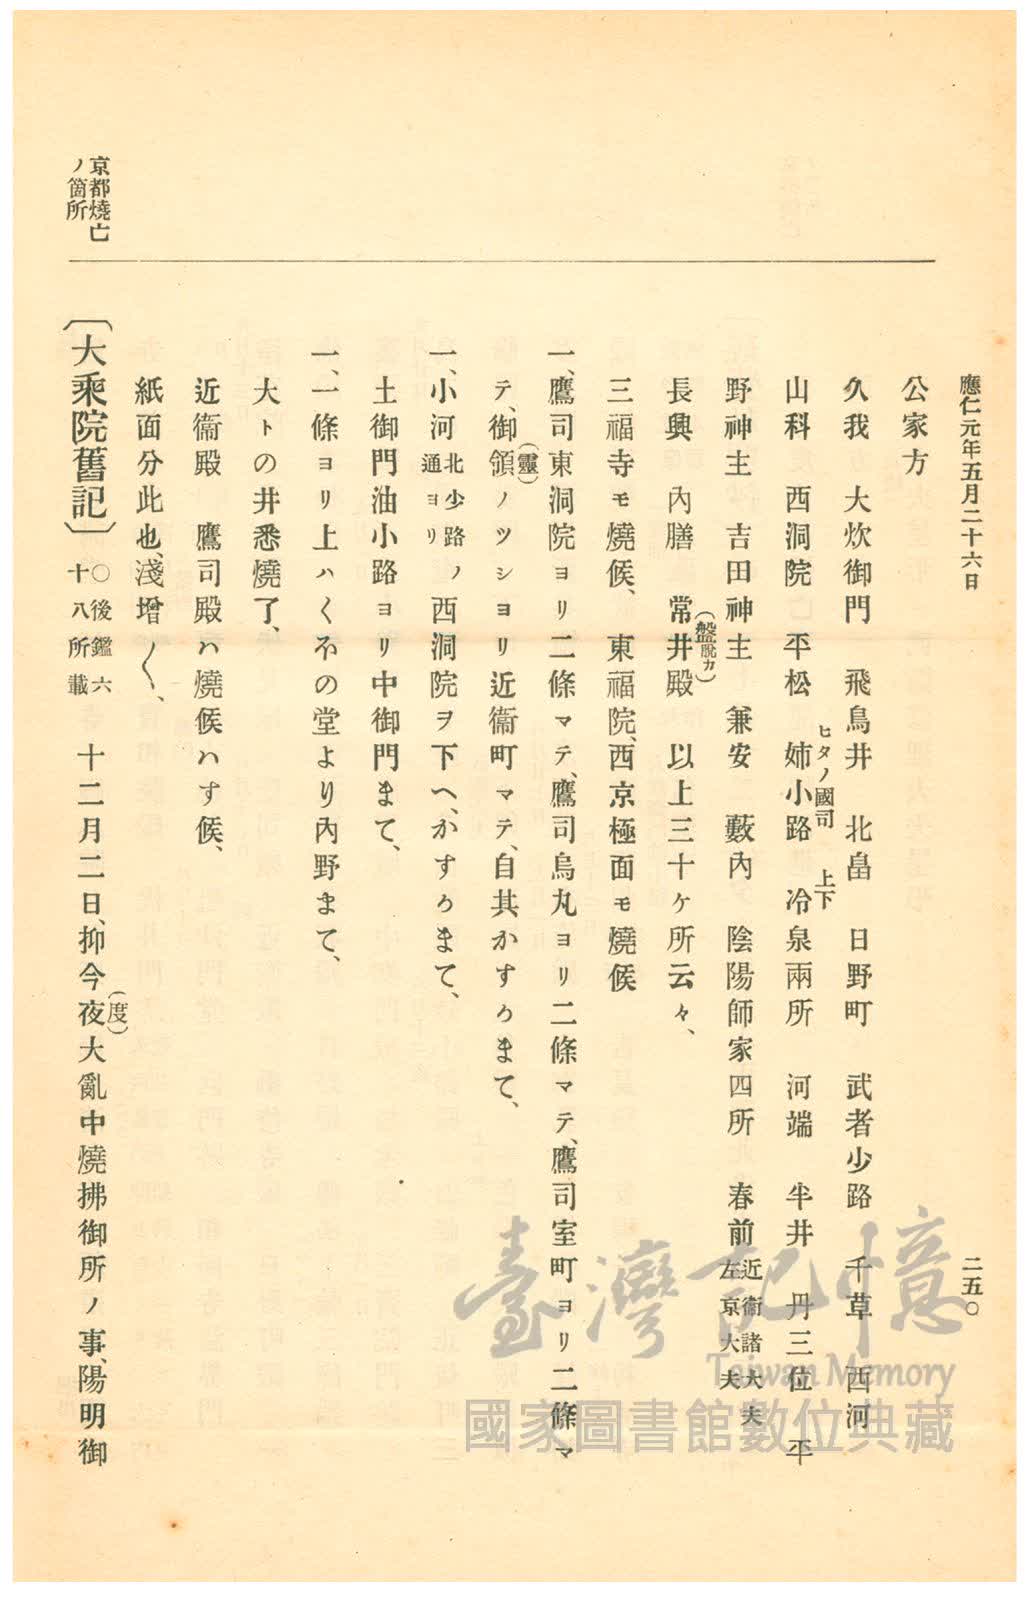 應仁元年五月二十六日
二五〇
公家方
久我　大炊御門　飛鳥井　北畠　日野町　武者少路　千草　西河
ヒタノ國司
上下
山科　西洞院　平松　姉小路　冷泉兩所　河端　半井　丹三位　平
野神主　吉田神主　兼安　藪內　陰陽師家四所　春前近衞諸大夫左京大夫
(盤脫カ)
長興　內膳　常井殿　以上三十ケ所云々、
三福寺モ燒候、　東福院、西京極面モ燒候
一、鷹司東洞院ヨリ二條マテ、鷹司烏丸ヨリ二條マテ、鷹司室町ヨリ二條マ
(靈)
テ、御領ノツシヨリ近衞町マテ、自其かすうまて、
一、小河北少路通ヨリノ西洞院ヲ下ヘ、かすうまて、
土御門油小路ヨリ中御門まて、
一、一條ヨリ上ハくの堂より內野まて、
大トの井悉燒了、
近衞殿　鷹司殿ハ燒候ハす候、
紙面分此也、淺增〱、
京都燒亡ノ箇所
(度)
〔大乘院舊記〕○後鑑六十八所載　十二月二日、抑今夜大亂中燒拂御所ノ事、陽明御
臺灣記憶
Taiwan Memory
國家圖書館數位典藏